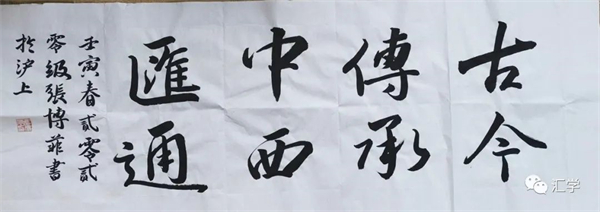 古今
傳承
中西
匯通
壬寅春貳零貳
零級張博菲書
於沪上
汇学